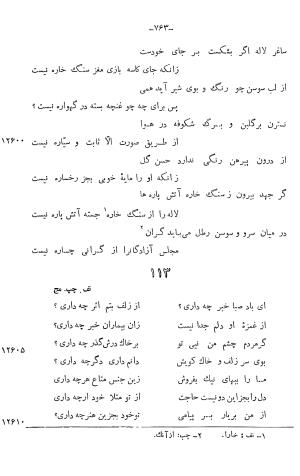 -۷۶۳-
ساغر لاله اگر بشکست بر جای خودست
زانکه جای کاسه بازی مغز سنگ خاره نیست
از لب سوسن چو رنگ و بوی شیر آید همی
پس برای چه چو غنچه بسته در گهواره نیست؟
نسترن بر گلبن و بر برگ شکوفه در هوا
۱۲۶۰۰ از طریق صورت الا ثابت و سیّاره نیست
از درون پیرهن رنگی ندارد حسن گل
زانکه او را مایهٔ خوبی بجز رخساره نیست
گر جهد بیرون ز سنگ خاره آتش پاره‌ها
لاله را از سنگ خاره۱ جسته آتش پاره نیست
در میان سرو و سوسن رطل می‌باید گران۲
مجلس آزادگانرا از گرانی چاره نیست
۱۱۳
نف، چپ، مج
ای باد صبا خبر چه داری؟ از زلف بتم اثر چه داری؟
از غمزهٔ او دلم جدا نیست زان بیماران خبر چه داری؟
گر مردم چشم من نیی تو بر خاک درش گذر چه داری؟
۱۲۶۰۵ بوی سر زلف و خاک کویش دانم داری دگر چه داری؟
ما را ببهای نیك بفروش زین جنس متاع هر چه داری
دل را بجز این دوئست حاجت از تو مثلا خود ار چه داری
۱۲۶۱۰ از من بر یار بر پیامی تو خود بجز این هنر چه داری؟
۱- نف: خارا. ۲- چپ: از آنك.